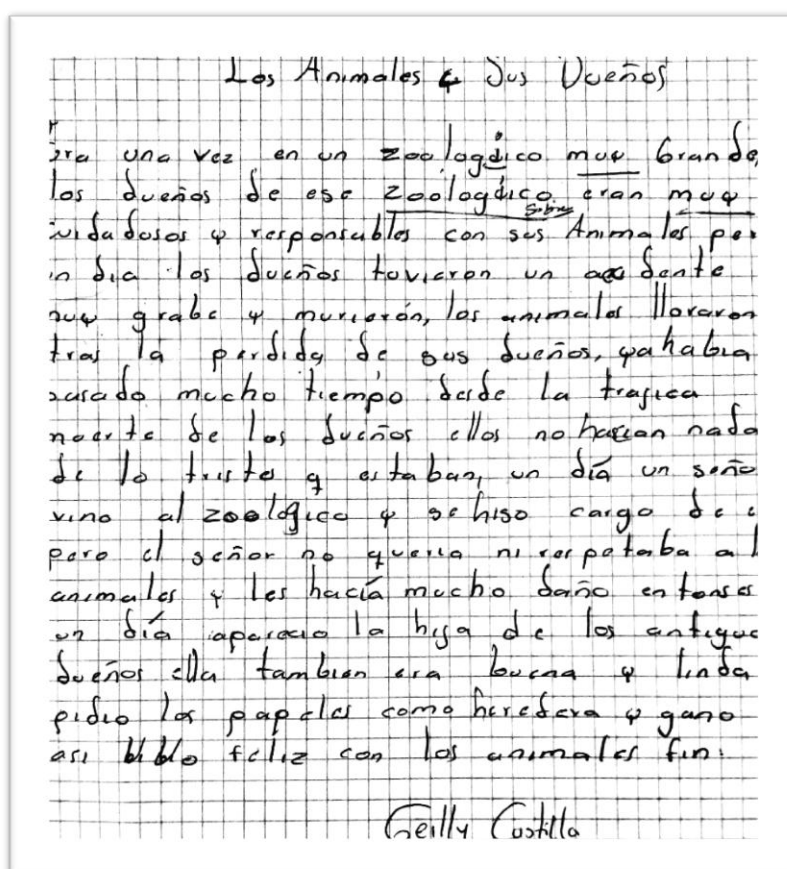 Los Animales y Sus Dueños
Era una vez en un zoologdico muy Grande,
los dueños de ese zoologdico eran muy
sobre
uidadosos y responsables con sus Animales per
un dia los dueños tuvieron un accidente
muy grabe y murierón, los animales lloraron
tras la perdida de sus dueños, ya habia
pasado mucho tiempo desde la trajica
muerte de los dueños ellos no hacian nada
de lo triste q estaban, un día un seño
vino al zoologico y se hiso cargo de e
pero el señor no queria ni respetaba a l
animales y les hacía mucho daño entonses
un día aparecio la hija de los antiguo
dueños ella tambien era buena y linda
pidio los papeles como heredera y gano
asi biblo feliz con los animales fin.
Geilly Castilla